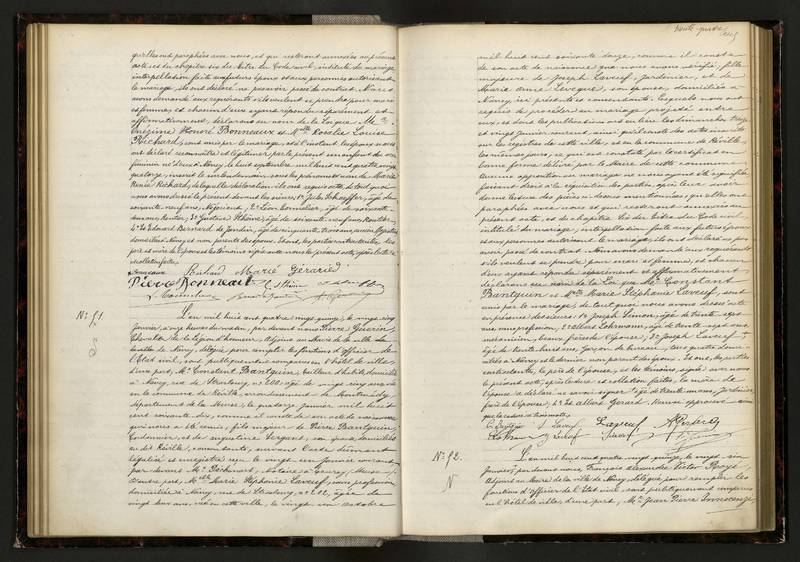 qu'elles ont paraphées avec nous, et qui resteront annexées au présent
acte, et du chapitre six du titre du Code civil, intitulé du mariage,
interpellation faite aux futurs époux et aux personnes autorisant
le mariage, ils ont déclaré ne pas avoir passé de contrat. Nous
avons demandé aux requérants s'ils veulent se prendre pour mari
et femme, et chacun d'eux ayant répondu séparément et
affirmativement, déclarons au nom de la loi que M.
Onézime Honoré Bonneaux et Mlle Rosalie Louise
Richard, sont unis par le mariage, et à l'instant les époux nous
ont déclaré reconnaître et légitimer par le présent un enfant du sexe
féminin né d'eux à Nancy, le huit septembre mil huit cent quatre vingt
quatorze, inscrit le surlendemain sous les prénoms et nom de Marie
Renée Richard, de laquelle déclaration ils ont requis acte, de tout quoi
nous avons dressé le présent devant les sieurs: 1° Jules Schaeffer, âgé de
soixante neuf ans, Négociant, 2° Léon Cornelier, âgé de soixante
ans, Rentier, 3° Gustave Thième, âgé de soixante neuf ans, Rentier,
4° et Edouard Bernard de Jandin, âgé de cinquante trois ans, ancien
domiciliés à Nancy et non parents des époux. Et ont, les parties contractantes, les
père et mère de l'époux et les témoins signé avec nous le présent acte, après lecture
collation faites.
Bonneaux Richard Marie Gérard
Pierre Bonneau
N° 51.
L'an mil huit cent quatre vingt quinze, le vingt six
Janvier, à onze heures du matin, par devant nous Pierre Guérin,
Chevalier de la légion d'honneur, Adjoint au Maire de la ville de
Nancy, délégué pour remplir les fonctions d'officier de
l'Etat civil, sont publiquement comparus en l'hôtel de ville,
d'une part, M. Constant Brantquin, tailleur d'habits, domicilié
à Nancy, rue de Strasbourg, n° 202, âgé de vingt cinq ans, né
en la commune de Réville, arrondissement de Montmédy,
département de la Meuse, le quatorze Janvier mil huit
cent soixante dix, comme il conste de son acte de naissance
qui nous a été remis, fils majeur de Pierre Brantquin,
Cordonnier, et de Augustine Sergent, son épouse, domiciliés
au dit Réville, consentants, suivant acte dûment
légalisé et enregistré reçu le vingt un Janvier courant,
par devant M. Pochinart, Notaire à (Meuse)
d'autre part, Mlle Marie Stéphanie Laveuf, sans profession,
domiciliée à Nancy, rue de Strasbourg, n° 202, âgée de
vingt deux ans, née en cette ville, le vingt un octobre
trente-quatre
mil huit cent soixante douze, comme il conste
de son acte de naissance que nous avons vérifié, fille
majeure de Joseph Laveuf, Jardinier, et de
Marie Anne Levêque, son épouse, domiciliés à
Nancy, ici présents et consentants; lesquels nous ont
requis de procéder au mariage projeté entre
eux, et dont les publications ont eu lieu les dimanches treize
et vingt Janvier courant, ainsi qu'il conste des actes inscrits
sur les registres de cette ville, et en la commune de Réville,
les mêmes jours, ce qui est constaté par le certificat en
bonne forme délivré par le Maire de cette commune
aucune opposition au mariage ne nous ayant été signifiée
faisant droit à la réquisition des parties, après leur avoir
donné lecture des pièces ci-dessus mentionnées, qu'elles ont
paraphées avec nous et qui resteront annexées au
présent acte, et du chapitre six du titre du Code civil,
intitulé du mariage, interpellation faite aux futurs époux
et aux personnes autorisant le mariage, ils ont déclaré ne pas
avoir passé de contrat. Nous avons demandé aux requérants
s'ils veulent se prendre pour mari et femme, et chacun
d'eux ayant répondu séparément et affirmativement
déclarons au nom de la loi que M. Constant
Brantquin et Mlle Marie Stéphanie Laveuf, sont
unis par le mariage, de tout quoi nous avons dressé acte
en présence des sieurs: 1° Joseph Simon, âgé de trente sept
ans, sans profession, 2° Albert Lohrmann, âgé de trente sept ans
mécanicien, beaux frères de l'épouse, 3° Joseph Laveuf,
âgé de trente huit ans, Garçon de bureau, tous quatre domi-
ciliés à Nancy et le dernier non parent des époux. Et ont, les parties
contractantes, le père de l'épouse, et les témoins, signé avec nous
le présent acte, après lecture et collation faites, la mère de
l'épouse a déclaré ne savoir signer. âgé de trente un ans, Jardinier
frère de l'épouse 4° et Albert Gérard
N° 52.
N
L'an mil huit cent quatre vingt quinze, le vingt six
Janvier, par devant nous, François Alexandre Victor
Adjoint au Maire de la ville de Nancy, délégué pour remplir les
fonctions d'officier de l'Etat civil, sont publiquement comparus
en l'hôtel de ville, d'une part, M. Jean Pierre Innocenze,